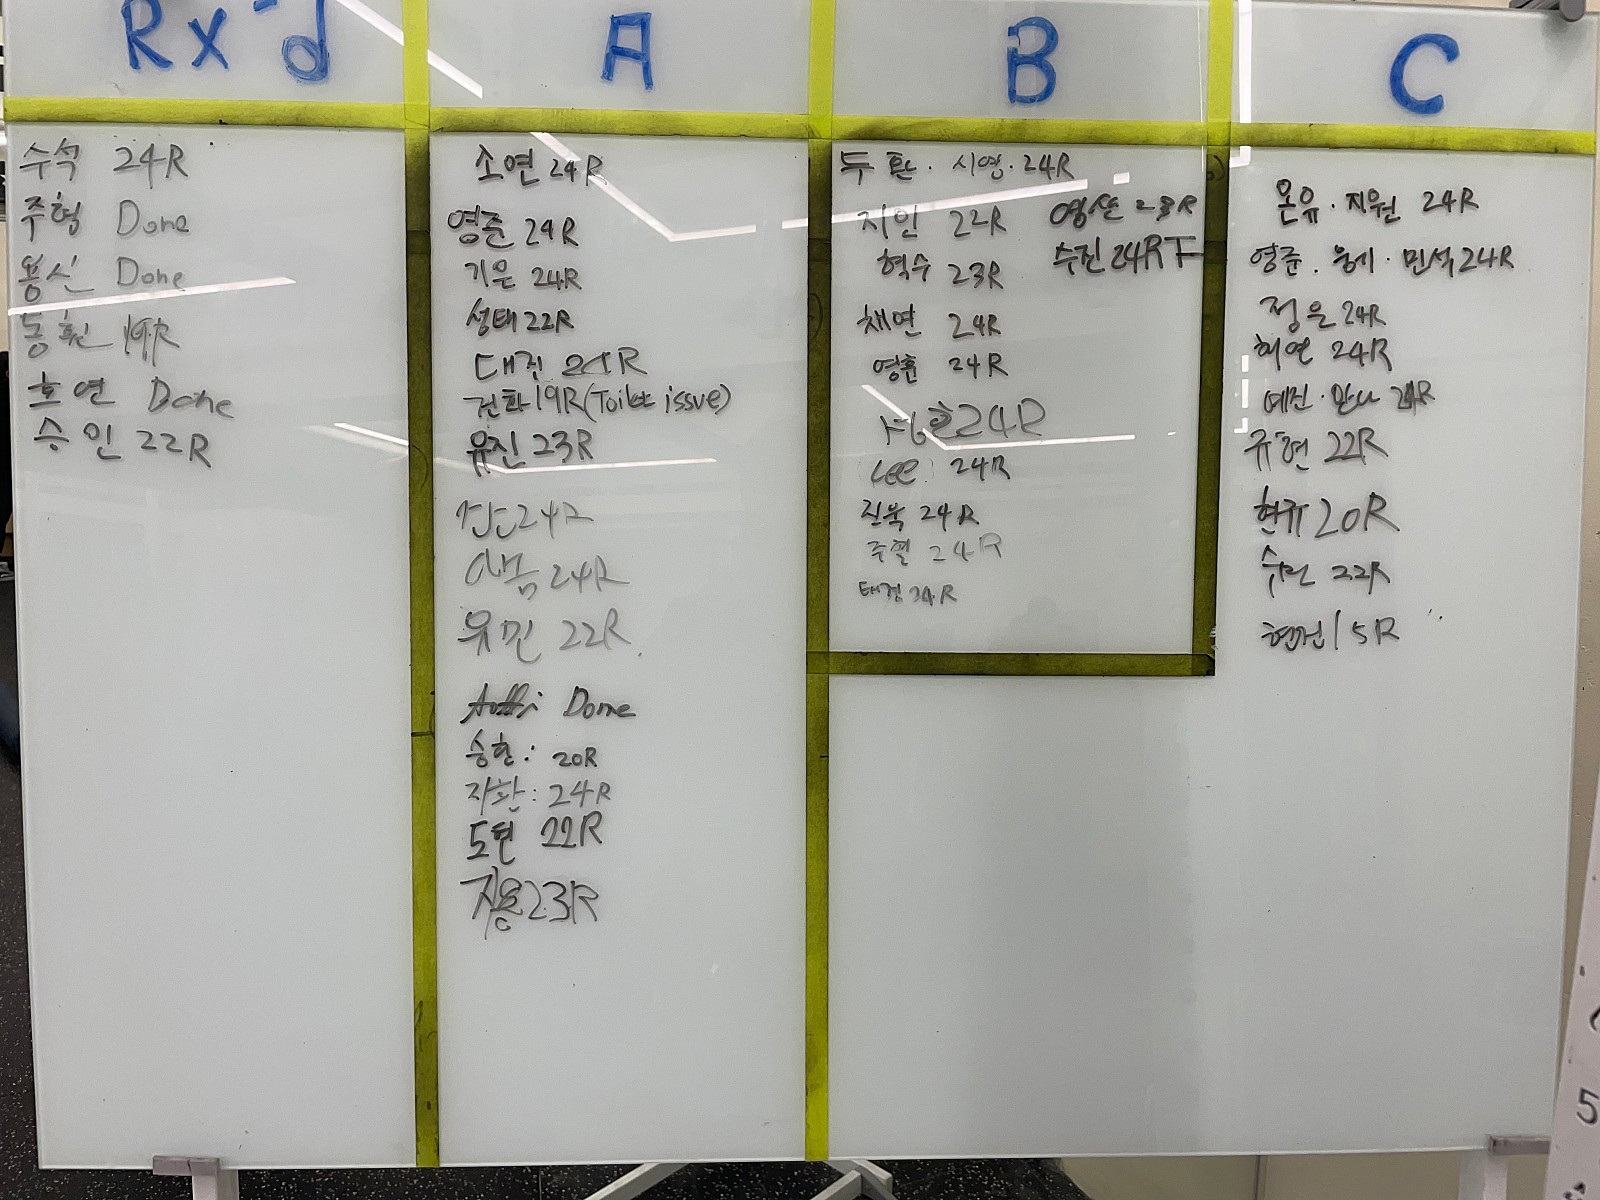 Rx'd
수석 24R
주혁 Done
용신 Done
동훤 19R
호연 Done
승인 22R
A
소연 24R
영준 24R
기은 24R
성태 22R
대진 24R
건화 19R (Toilet issue)
유진 23R
24R
새봄 24R
유민 22R
Done
승환: 20R
지환: 24R
도현 22R
지용 23R
B
두환. 시영. 24R
지인 22R
혁수 23R
채연 24R
영훈 24R
24R
Lee: 24R
진욱 24R
주필 24R
태경 24R
영산 23R
수진 24R F
C
온유. 지원 24R
영준. 웅비. 민석 24R
정은 24R
희연 24R
예진. 안나 24R
규현 22R
현규 20R
수민 22R
현건 15R
5